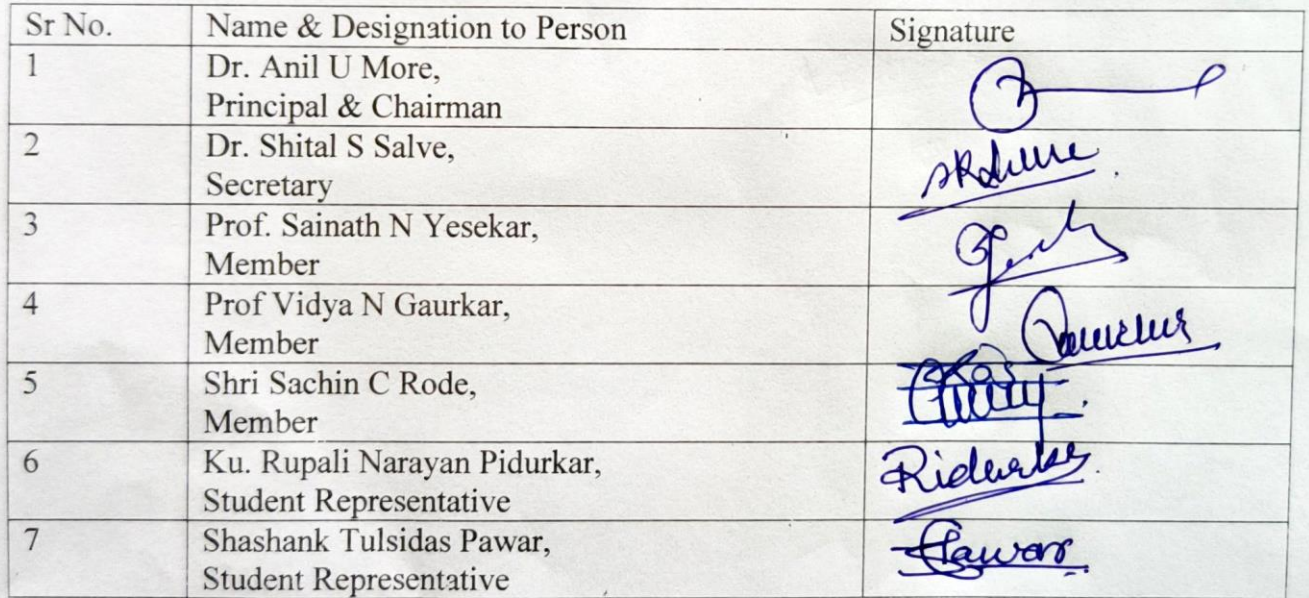 Sr No. Name & Designation to Person Signature
1 Dr. Anil U More,
Principal & Chairman
2 Dr. Shital S Salve,
Secretary
3 Prof. Sainath N Yesekar,
Member
4 Prof Vidya N Gaurkar,
Member
5 Shri Sachin C Rode,
Member
6 Ku. Rupali Narayan Pidurkar,
Student Representative
7 Shashank Tulsidas Pawar,
Student Representative